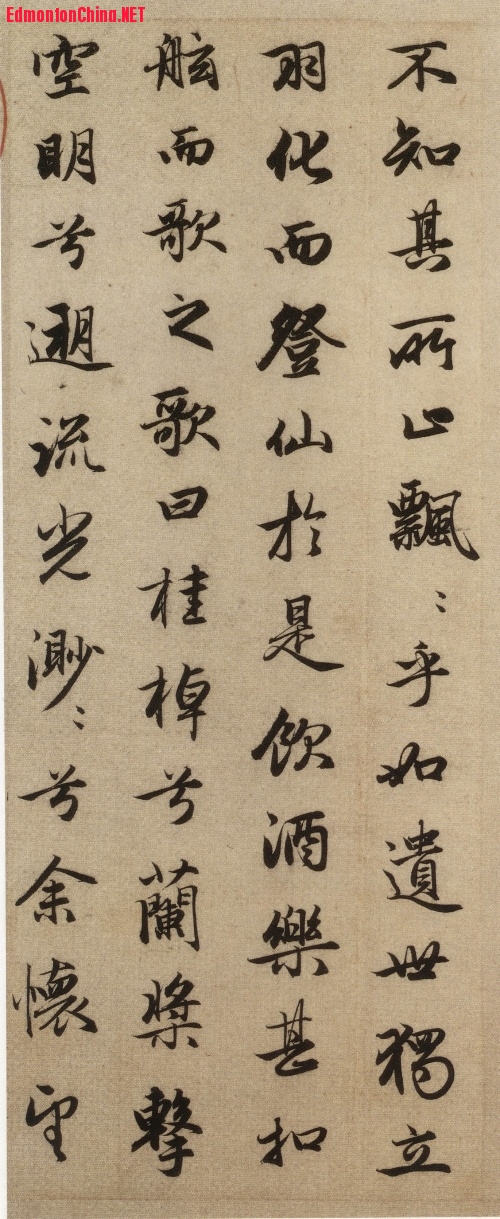 EdmontonChina.NET
不知其所止飄〻乎如遺世獨立
羽化而登仙於是飲酒樂甚扣
舷而歌之歌曰桂棹兮蘭槳擊
空明兮遡流光渺〻兮余懷望